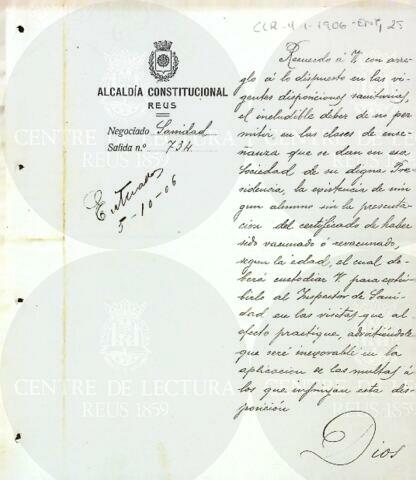 CLR-4.1-1906-Ent, 25
ALCALDÍA CONSTITUCIONAL
REUS
Negociado Sanidad
Salida n.º 734
Enterados
5-10-06
Recuerdo á V. con arre-
glo á lo dispuesto en las vi-
gentes disposiciones sanitarias,
el ineludible deber de no per-
mitir, en las clases de ense-
ñanza que se den en esa
Sociedad de su digna Pre-
sidencia, la existencia de nin-
gun alumno sin la presenta-
cion del certificado de haber
sido vacunado ó revacunado,
segun la edad, el cual de-
berá custodiar V. para exhi-
birlo al Inspector de Sani-
dad en las visitas que al
efecto practique, advirtiéndole
que seré inexorable en la
aplicacion de las multas á
los que infrinjan esta dis-
posición
Dios
CENTRE DE LECTURA
REUS 1859
CENTRE DE LECTURA
REUS 1859
CENTRE DE LECTURA
REUS 1859
CENTRE DE LECTURA
REUS 1859